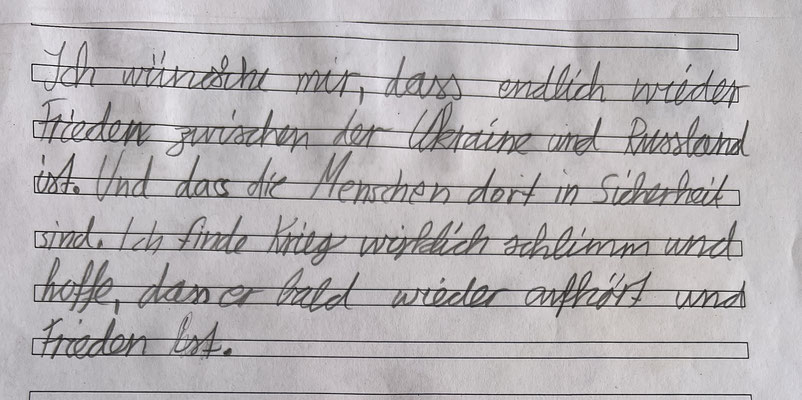 Ich wünsche mir, dass endlich wieder
Frieden zwischen der Ukraine und Russland
ist. Und das die Menschen dort in Sicherheit
sind. Ich finde Krieg wirklich schlimm und
hoffe, dass er bald wieder aufhört und
Frieden ist.